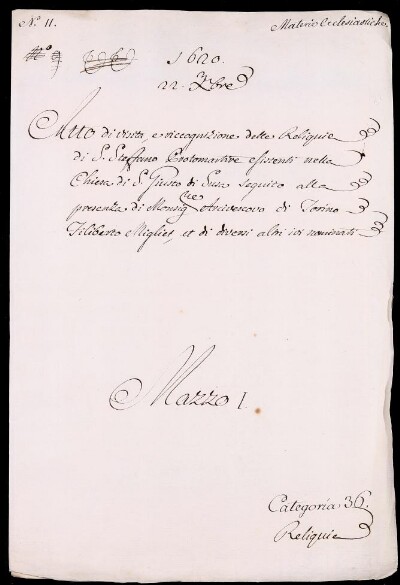 N.º 11.
Materie Ecclesiastiche.
N.º 9
1620.
22. Xbre
Atto di visita, e riccognizione delle Reliquie
di S. Steffano Protomartire esistenti nella
Chiesa di S. Giusto di Susa seguito alla
presenza di Monsig.re Arcivescovo di Torino
Filiberto Migliet, et di diversi altri ivi nominati
Mazzo I.
Categoria 36.
Reliquie